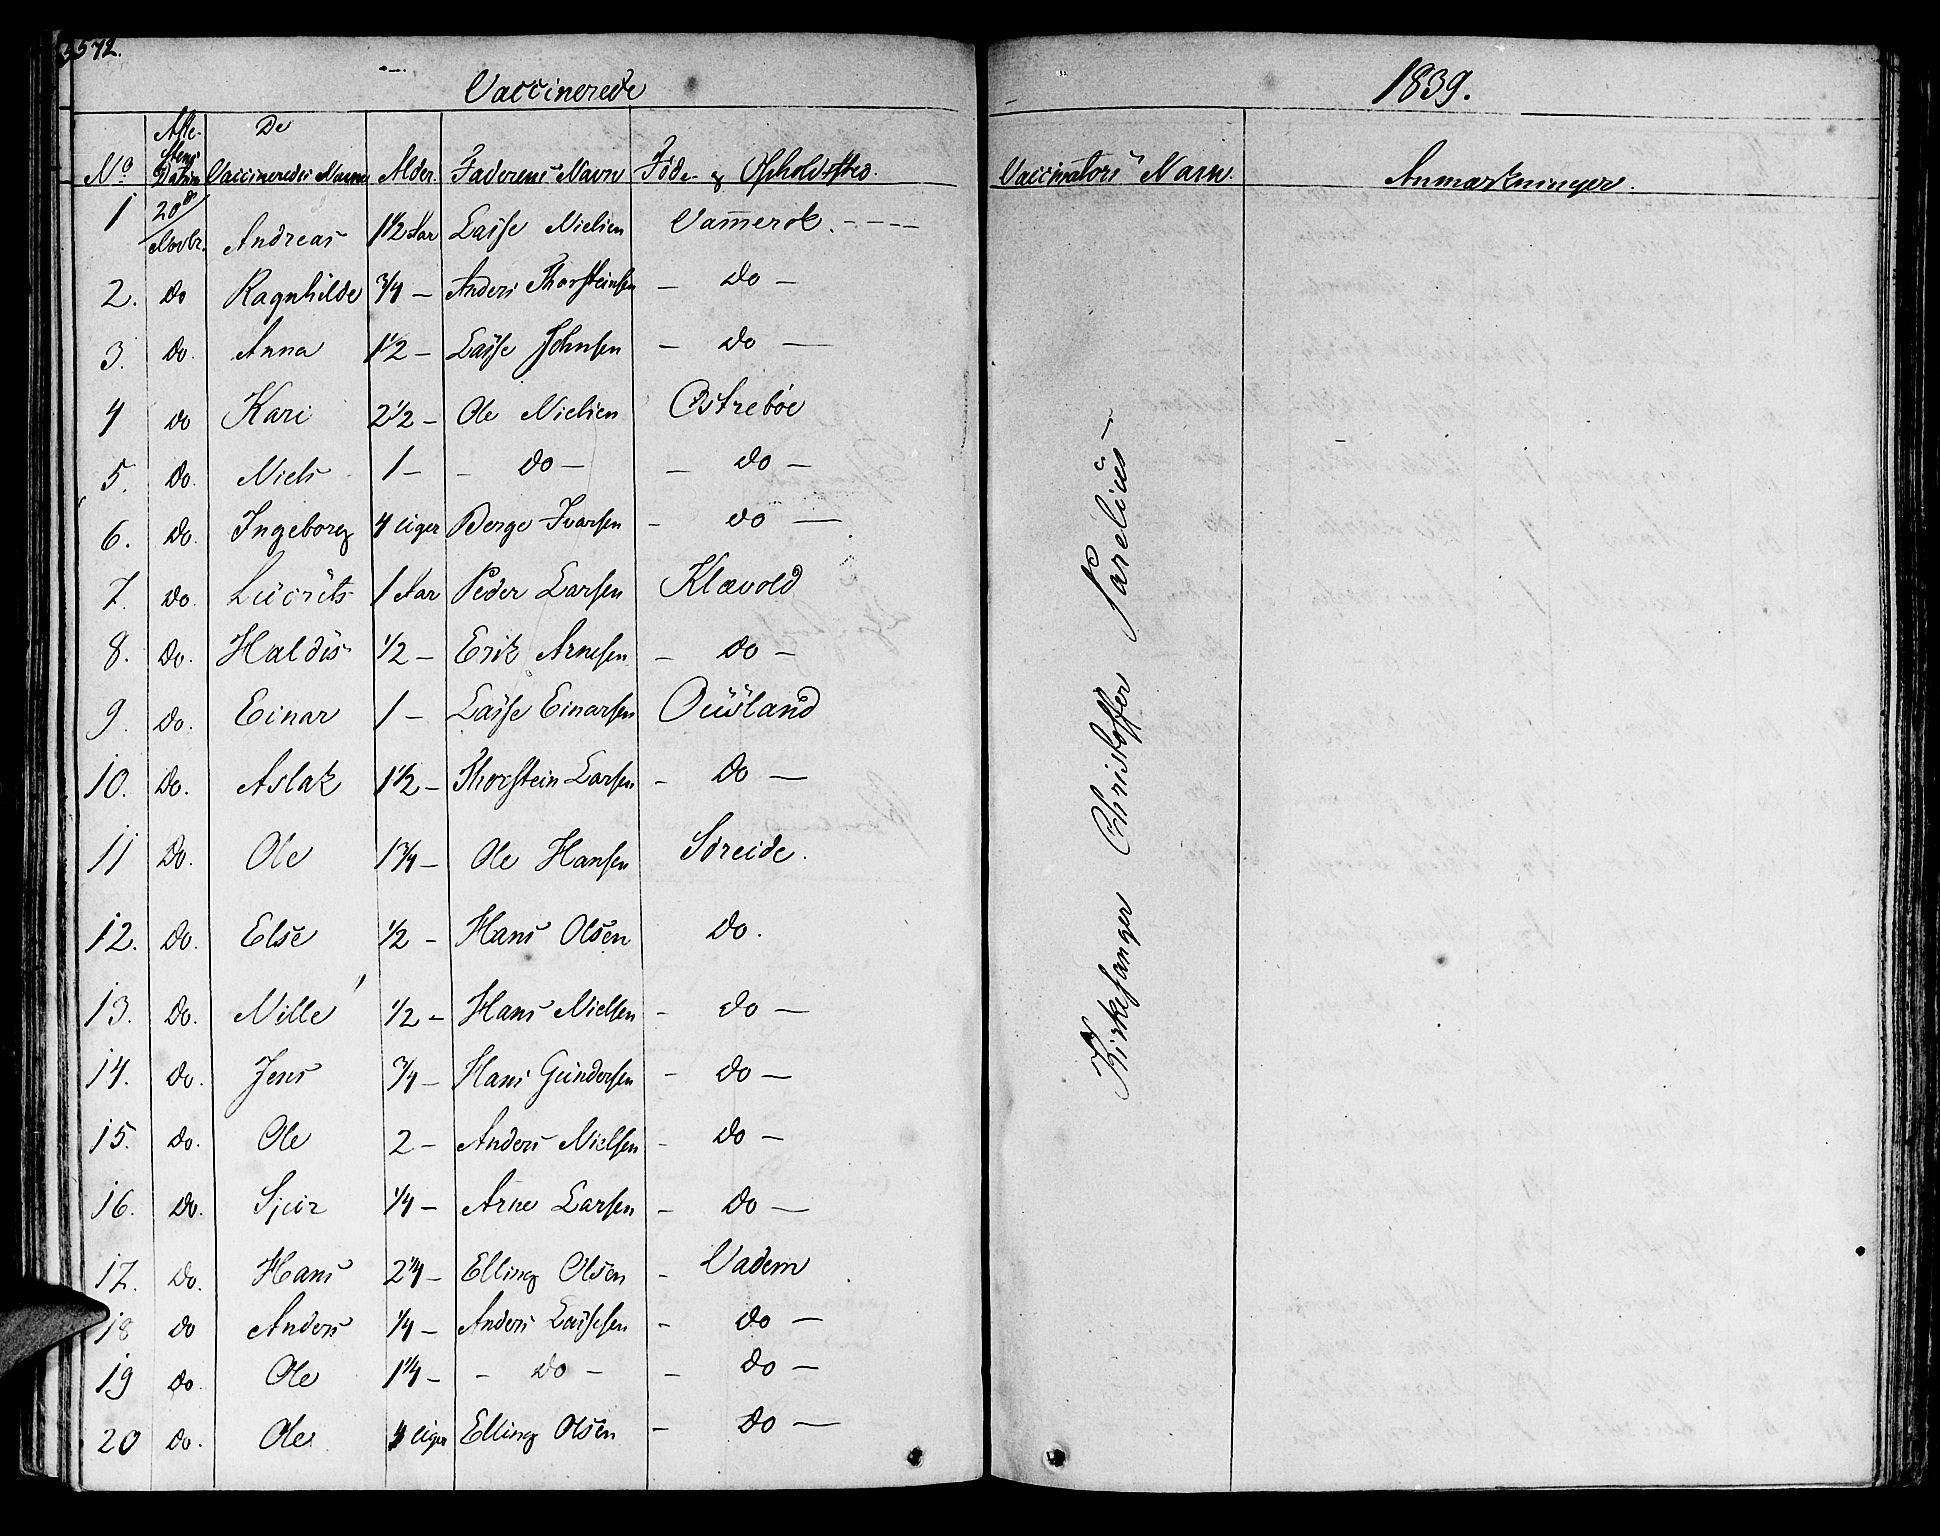 572.
Vaccinerede
1839.
No Atte-stens Datum De Vaccineredes Navne Alder Faderens Navn Føde- og Opholdssted. Vaccinators Navn Anmærkninger.
1 20de/Novbr. Andreas 1 1/2 Aar Lasse Nielsen Vamerok.
2. do Ragnhilde 3/4 — Anders Thorsteinsen — do —
3. do. Anna 1 1/2 — Lasse Johnsen — do —
4 do Kari 2 1/2 — Ole Nielsen Østrebøe
5. do. Niels 1 — — do — — do —
6. do. Ingeborg 4 Uger Berge Ivarsen — do —
7. do. Lucrits 1 Aar Peder Larsen Klævold
8. do. Haldis 1/2 — Erik Arnesen — do —
9. do. Einar 1 — Lasse Einarsen Ouwland
10. do. Aslak 1 1/2 — Thorstein Larsen — do —
11 do. Ole 1 3/4 — Ole Hansen Søreide.
12. do. Else 1/2 — Hans Olsen do.
13. do. Nille 1/2 — Hans Nielsen — do —
14. do. Jens 3/4 — Hans Gundersen — do —
15. do. Ole 2 — Anders Nielsen — do —
16. do. Sjur 1/4 — Arne Larsen — do —
17. do. Hans 2 1/4 — Elling Olsen — Vadem
18 do Anders 1/4 — Anders Lassesen — do —
19 do. Ole 1 1/4 — — do — — do —
20 do. Ole 4 Uger Elling Olsen — do —
Kirkesanger Christoffer Sarelius —